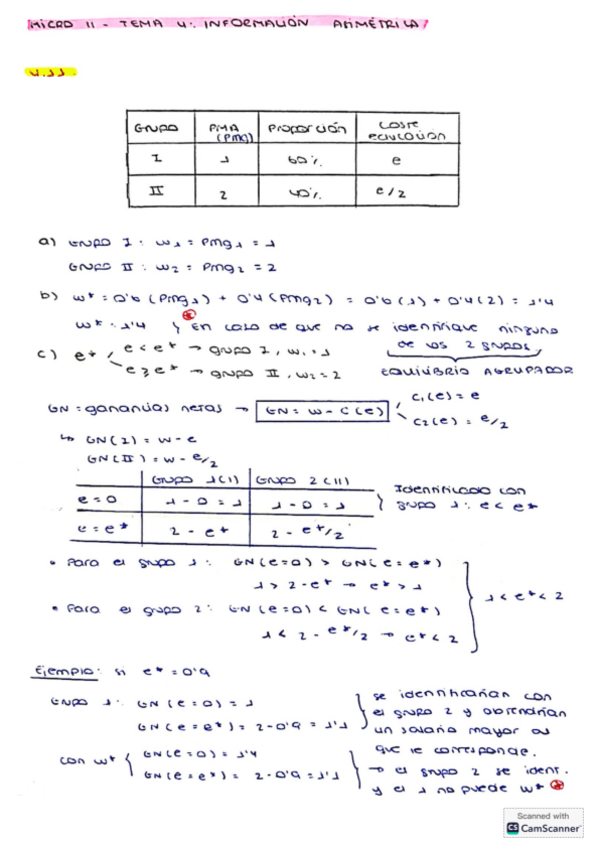 MICRO II - TEMA 4: INFORMACIÓN ASIMÉTRICA
4.11.
GRUPO PMA (PMg) PROPORCIÓN COSTE EDUCACIÓN
I 1 60% e
II 2 40% e/2
a) GRUPO I: w1 = PMg1 = 1
GRUPO II: w2 = PMg2 = 2
b) w* = 0'6 (PMg1) + 0'4 (PMg2) = 0'6 (1) + 0'4 (2) = 1'4
w* = 1'4 y en caso de que no se identifique ninguno
de los 2 grupos.
EQUILIBRIO AGRUPADOR
c) e* e < e* → grupo I, w1 = 1
e ≥ e* → grupo II, w2 = 2
GN = ganancias netas → GN = w - c(e)
c1(e) = e
c2(e) = e/2
↳ GN(I) = w - e
GN(II) = w - e/2
GRUPO 1(I) GRUPO 2(II)
e = 0 1 - 0 = 1 1 - 0 = 1
e = e* 2 - e* 2 - e*/2
Identificado con
grupo 1: e < e*
• Para el grupo 1: GN(e=0) > GN(e=e*)
1 > 2 - e* → e* > 1
• Para el grupo 2: GN(e=0) < GN(e=e*)
1 < 2 - e*/2 → e* < 2
1 < e* < 2
Ejemplo: si e* = 0'9
Grupo 1: GN(e=0) = 1
GN(e=e*) = 2 - 0'9 = 1'1
se identificarían con
el grupo 2 y obtendrían
un salario mayor al
que le corresponde.
con w* GN(e=0) = 1'4
GN(e=e*) = 2 - 0'9 = 1'1
→ el grupo 2 se ident.
y el 1 no puede w*
Scanned with
CS CamScanner